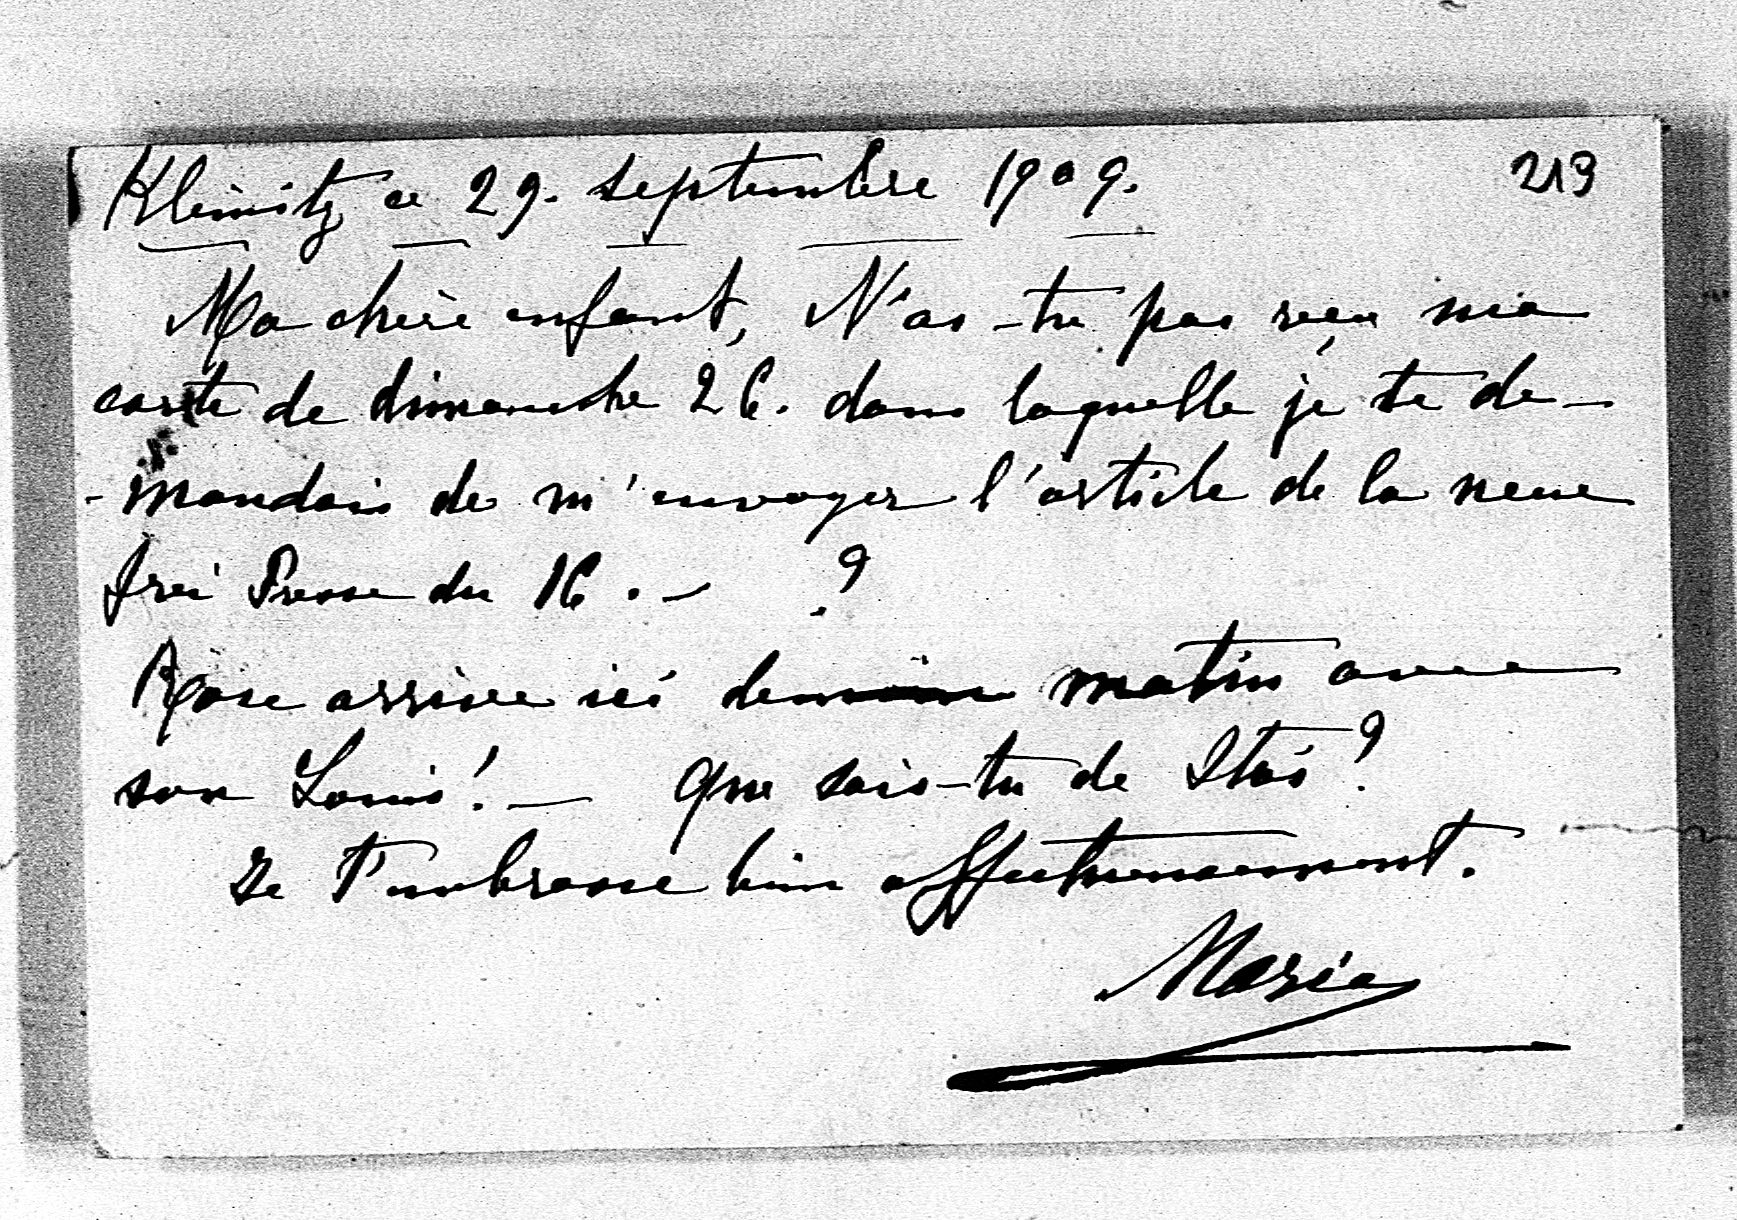 Kleinitz ce 29. septembre 1909. 213
Ma chère enfant, N'as-tu pas reçu ma
carte de dimanche 26. dans laquelle je te de-
-mandais de m'envoyer l'article de la neue
freie Presse du 16. - ?
Rose arrive ici demain matin avec
son Louis! — Que sais-tu de Stas?
Je t'embrasse bien affectueusement.
Marie